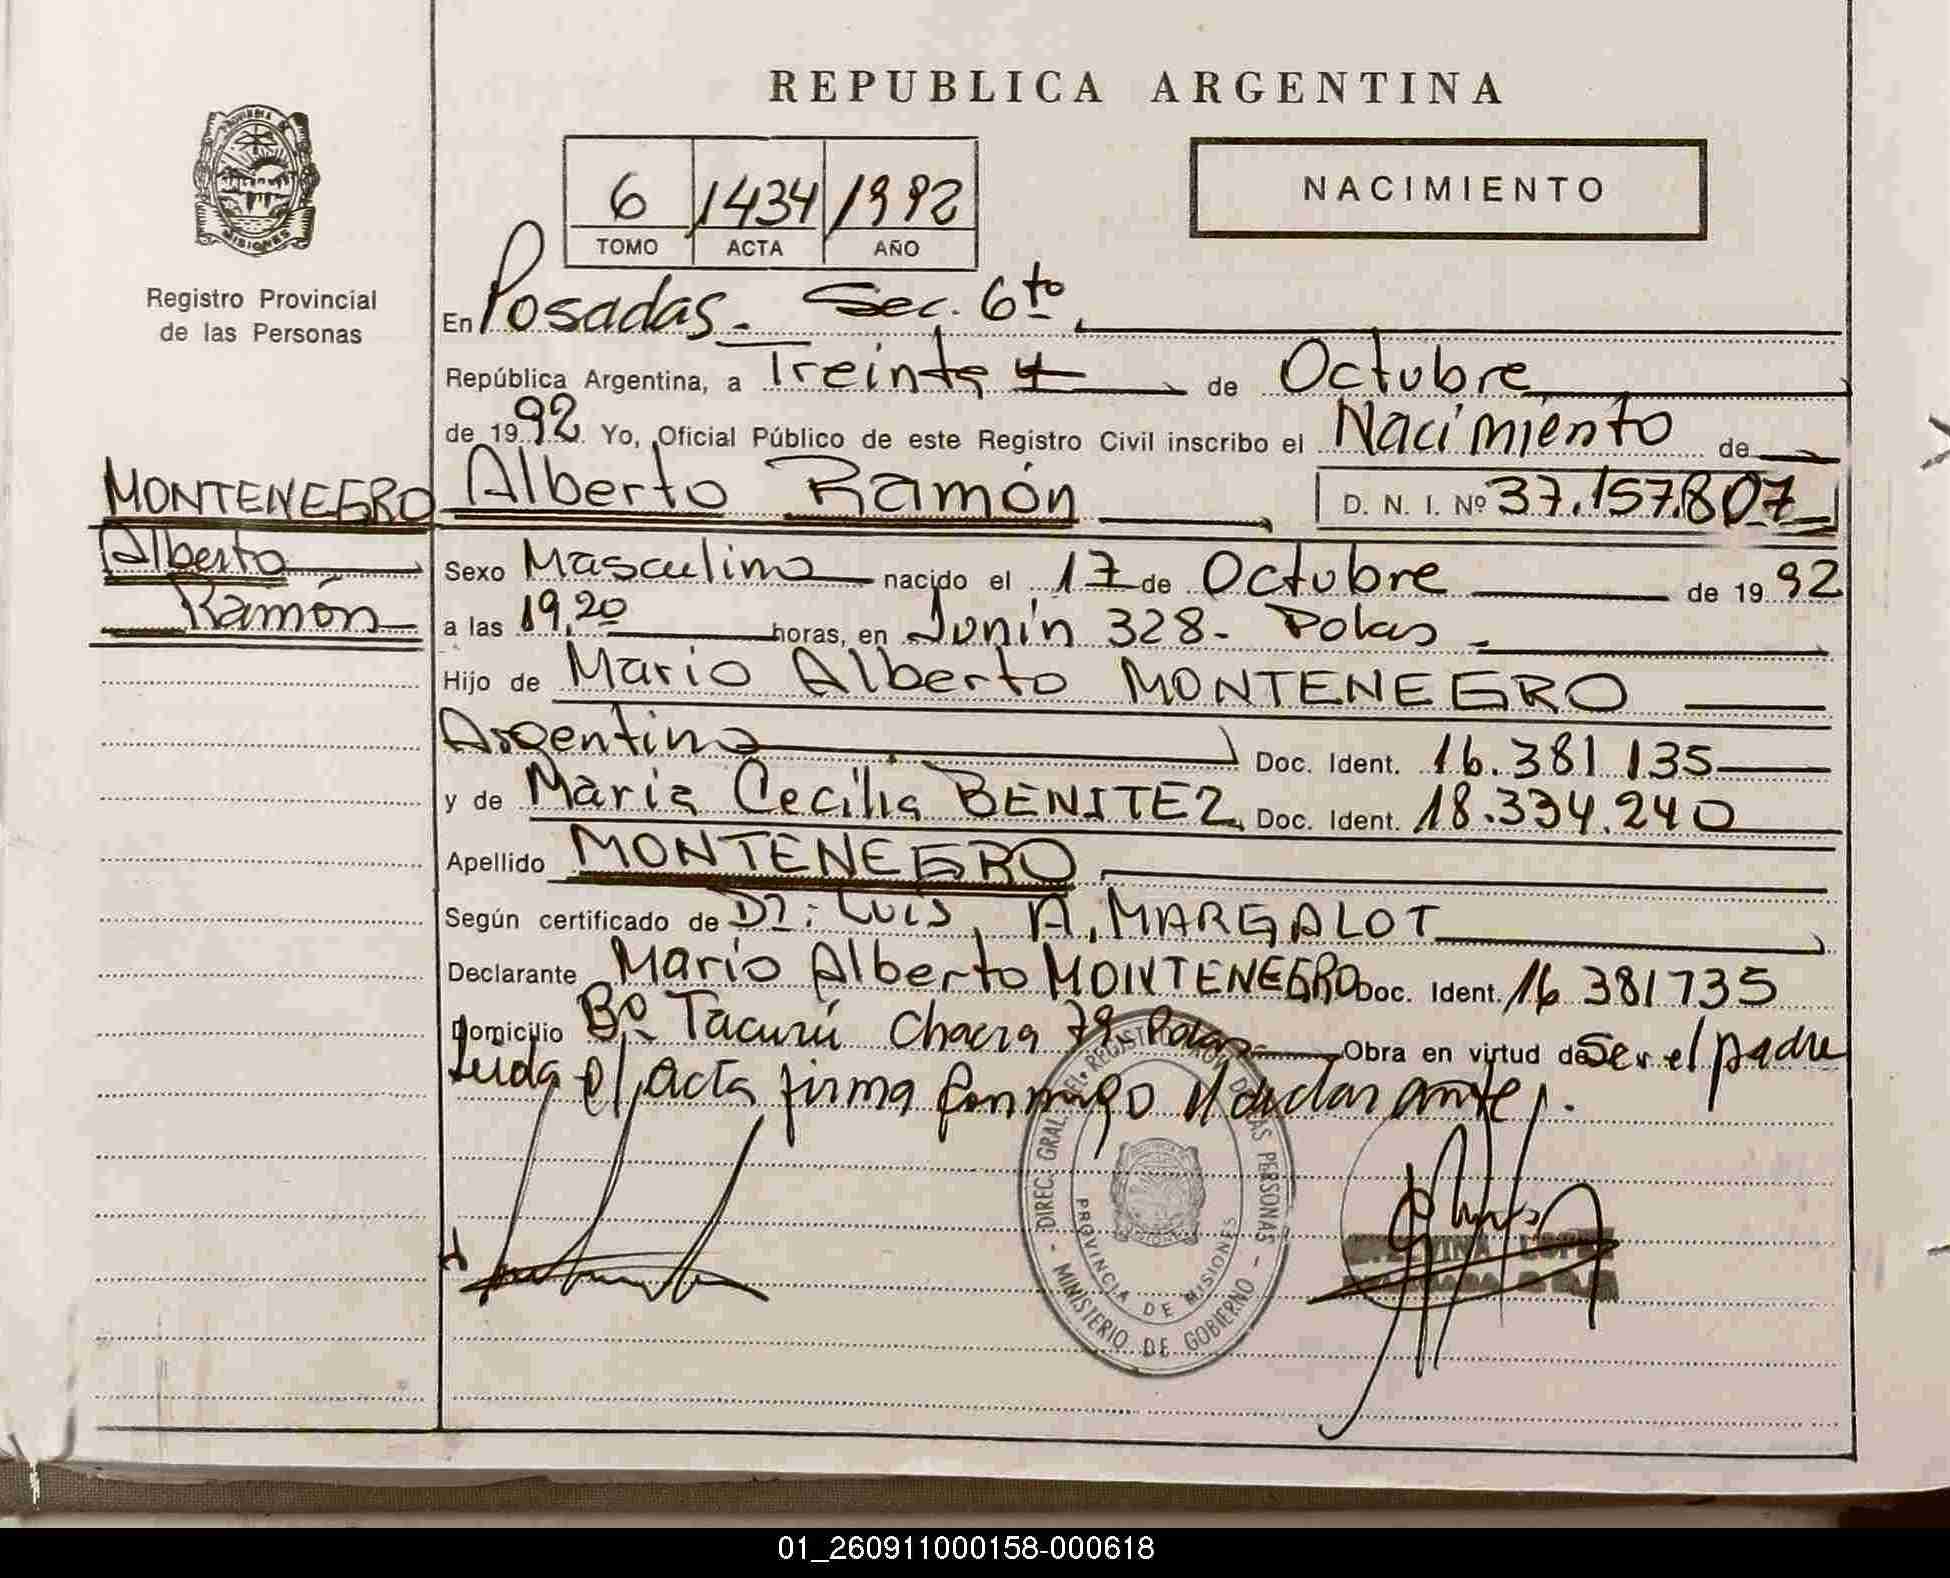 REPUBLICA ARGENTINA
NACIMIENTO
6 1434 1992
TOMO ACTA AÑO
PROVINCIA DE MISIONES
Registro Provincial
de las Personas
MONTENEGRO
Alberto
Ramón
En Posadas. Sec. 6to.
República Argentina, a Treinta de Octubre
de 1992 Yo, Oficial Público de este Registro Civil inscribo el Nacimiento de
Alberto Ramón D. N. I. Nº 37.157.807
Sexo Masculino nacido el 17 de Octubre de 1992
a las 19,20 horas, en Junín 328- Pdas.
Hijo de Mario Alberto MONTENEGRO
Argentino Doc. Ident. 16.381 135
y de Maria Cecilia BENITEZ Doc. Ident. 18.334.240
Apellido MONTENEGRO
Según certificado de Dr: Luis A. MARGALOT
Declarante Mario Alberto MONTENEGRO Doc. Ident. 16 381735
Domicilio Bº Tacurú Chacra 79 Pdas Obra en virtud de Ser el padre
Leida el acta firma conmigo el declarante.
DIREC. GRAL. DEL REGISTRO PROV. DE LAS PERSONAS
PROVINCIA DE MISIONES
- MINISTERIO DE GOBIERNO -
01_260911000158-000618